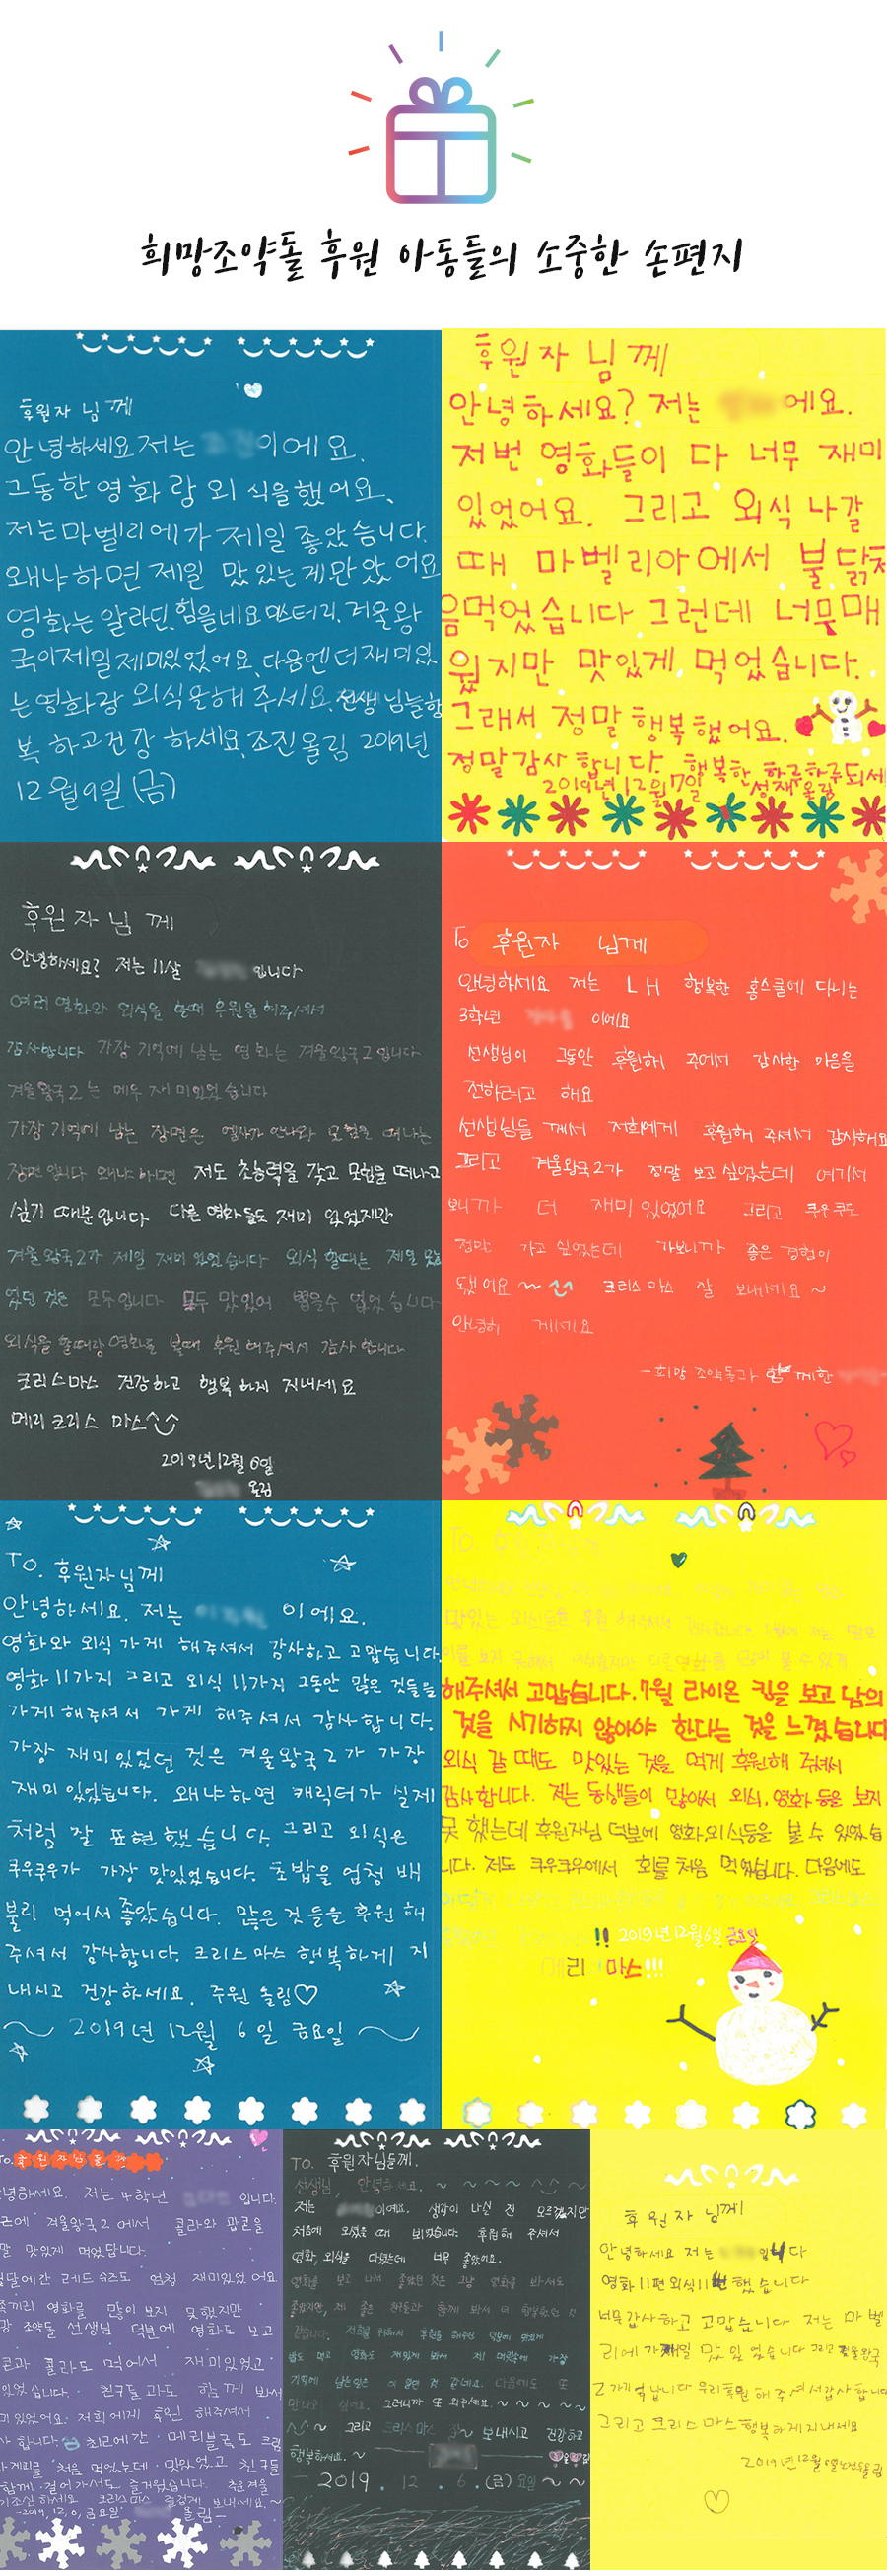 희망조약돌 후원 아동들의 소중한 손편지
후원자 님께
안녕하세요 저는 이에요.
그동한 영화랑 외식을했어요.
저는마벨리에가 제일 좋았습니다.
왜냐하면 제일 맛있는게 았어요
영화는 알라딘, 힘을내요 미스터리, 겨울왕
국이제일재미있었어요 다음엔더재미있
는영화랑 외식을해 주세요. 선생님들행
복 하고건강 하세요. 조진올림 2019년
12월9일 (금)
후원자 님께
안녕하세요? 저는 에요.
저번 영화들이 다 너무 재미
있었어요. 그리고 외식 나갈
때 마벨리아에서 불닭
음먹었습니다 그런데 너무매
웠지만 맛있게 먹었습니다.
그래서 정말 행복했어요.
정말감사 합니다. 행복한 하루하루되세
2019년12월7일 성재올림
후원자님 께
안녕하세요? 저는 11살 입니다
여러 영화와 외식을 할때 후원을 해주셔서
감사합니다 가장 기억에 남는 영화는 겨울왕국2입니다
겨울왕국2는 매우 재미있었습니다
가장 기억에 남는 장면은 엘사가 안나와 모험을 떠나는
장면입니다 왜냐하면 저도 초능력을 갖고 모험을 떠나고
싶기 때문입니다 다른 영화들도 재미 있었지만
겨울왕국2가 제일 재미있었습니다 외식 할때는 제일 맛있
었던 것은 모두입니다 모두 맛있어 뱉을수 없었습니다
외식을 할때랑 영화를 볼때 후원해주셔서 감사합니다
크리스마스 건강하고 행복하게 지내세요
메리 크리스 마스^^
2019년12월6일
올림
To 후원자 님께
안녕하세요 저는 LH 행복한 홈스쿨에 다니는
3학년 이에요
선생님이 그동안 후원해 주셔서 감사한 마음을
전하려고 해요
선생님들 께서 저희에게 후원해 주셔서 감사해요
그리고 겨울왕국2가 정말 보고싶었는데 여기서
보니까 더 재미있었어요 그리고 쿠우쿠도
정말 가고 싶었는데 가보니까 좋은 경험이
됐어요~ ^^ 크리스마스 잘 보내세요~
안녕히 계세요
-희망 조약돌과 함께한
TO. 후원자님께
안녕하세요. 저는 이에요.
영화와 외식 가게 해주셔서 감사하고 고맙습니다.
영화 11가지 그리고 외식 11가지 그동안 많은 것들을
가게 해주셔서 가게 해주셔서 감사합니다.
가장 재미있었던 것은 겨울왕국2가 가장
재미있었습니다. 왜냐하면 캐릭터가 실제
처럼 잘 표현했습니다. 그리고 외식은
쿠우쿠우가 가장 맛있었습니다. 초밥을 엄청 배
불리 먹어서 좋았습니다. 많은것들을 후원 해
주셔서 감사합니다. 크리스마스 행복하게 지
내시고 건강하세요. 주원 올림♡
~ 2019년 12월 6일 금요일 ~
To. 후원자님께
맛있는 외식들을 후원 해주셔서 감사합니다.
해주셔서 고맙습니다. 7월 라이온 킹을 보고 남의
것을 시기하지 않아야 한다는 것을 느꼈습니다
외식 갈 때도 맛있는 것을 먹게 후원해 주셔서
감사합니다. 저는 동생들이 많아서 외식, 영화 등을 보지
못 했는데 후원자님 덕분에 영화,외식등을 볼 수 있었습
니다. 저도 쿠우쿠우에서 회를 처음 먹었습니다. 다음에도
!! 2019년12월6일 금요일
메리 마스!!!
To. 후원자님들께
녕하세요. 저는 4학년 입니다.
근에 겨울왕국2에서 콜라와 팝콘을
말 맛있게 먹었답니다.
달에간 레드슈즈도 엄청 재미있었어요.
족끼리 영화를 많이 보지 못했지만
망 조약돌 선생님 덕분에 영화도 보고
콘과 콜라도 먹어서 재미있었고
있었습니다. 친구들과도 함께 봐서
미있었어요. 저희에게 후원 해주셔서
사합니다. 최근에간 메리볼도 크림
게리를 처음 먹었는데 맛있었고 친구들
함께 걸어가서도 즐거웠습니다. 추운겨울
기조심하세요 크리스마스 즐겁게 보내세요.~
-2019, 12, 6, 금요일 올림-
TO. 후원자님들께.
선생님, 안녕하세요. ~ ~ ~ ~ ^^ ~
저는 이에요. 생각이 나실 진 모르겠지만
처음에 외식을 때 뵈었습니다. 후원해 주셔서
영화, 외식을 다녔는데 너무 좋았어요.
영화를 보고 나서 좋았던 것은 그냥 영화를 봐서도
좋았지만, 제 좋은 친구들과 함께 봐서 더 행복했던 것
같습니다. 저희를 위해서 후원을 해주신 덕분에 맛있게
밥도 먹고 영화도 재밌게 봐서 제 머릿속에 가장
기억에 남는일은 이 일인 것 같네요. 다음에도 또
만나고 싶어요. 그러니까 또 와주세요. ~ ~ ~ ~ ~
^^ ~ 그리고 크리스마스 잘~ 보내시고 건강하고
행복하세요. ~
- 2019 . 12 . 6 . (금)요일 ~ ~
후원자 님께!
안녕하세요 저는 입니다
영화11편 외식11번 했습니다
너무감사하고 고맙습니다 저는 마벨
리에가제일 맛 있 었습니다 그리고 겨울왕국
2 가기억납니다 우리후원해주셔서감사합니다
그리고 크리스마스행복하게지내세요
2019년12월